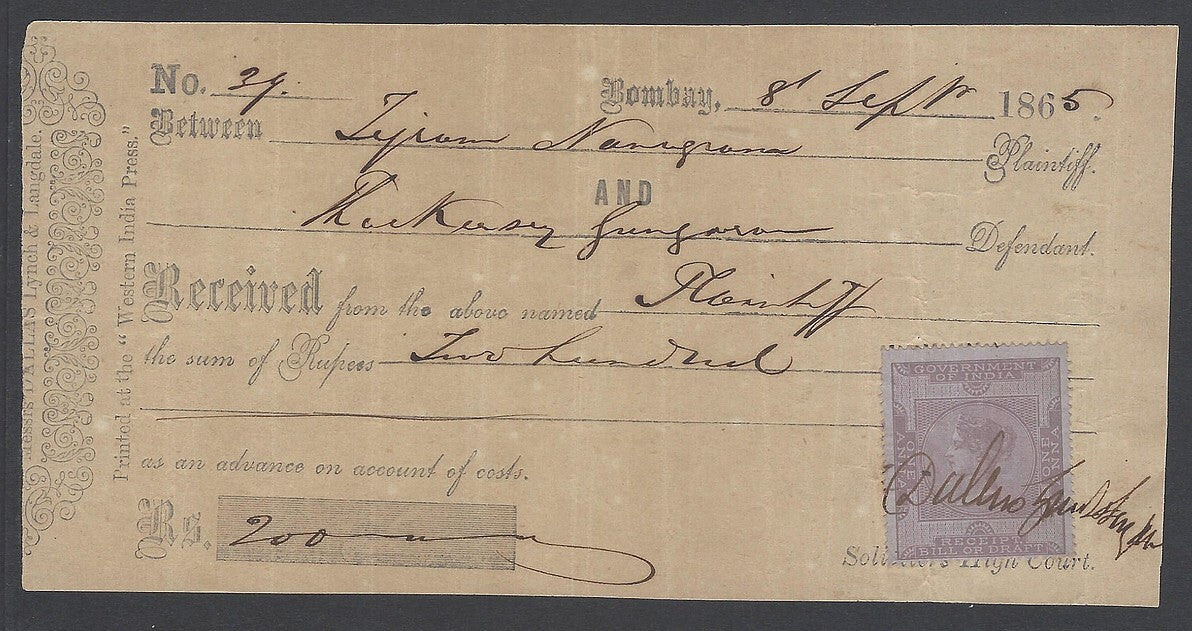 Messrs DALLAS Lynch & Langdale.
Printed at the "Western India Press."
No. 39. Bombay, 8th Septr 1865.
Between Tejram Nanugram Plaintiff.
AND
Thackersey Gungaram Defendant.
Received from the above named Plaintiff
the sum of Rupees Two hundred
as an advance on account of costs.
Rs. 200
GOVERNMENT
OF INDIA
ONE ANNA
ONE ANNA
RECEIPT
BILL OR DRAFT
Dallas
Solicitors High Court.